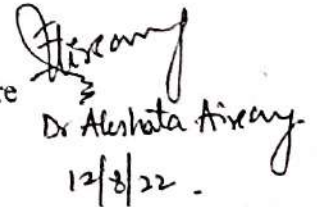 re
Dr Akshata Aireay.
12/8/22.